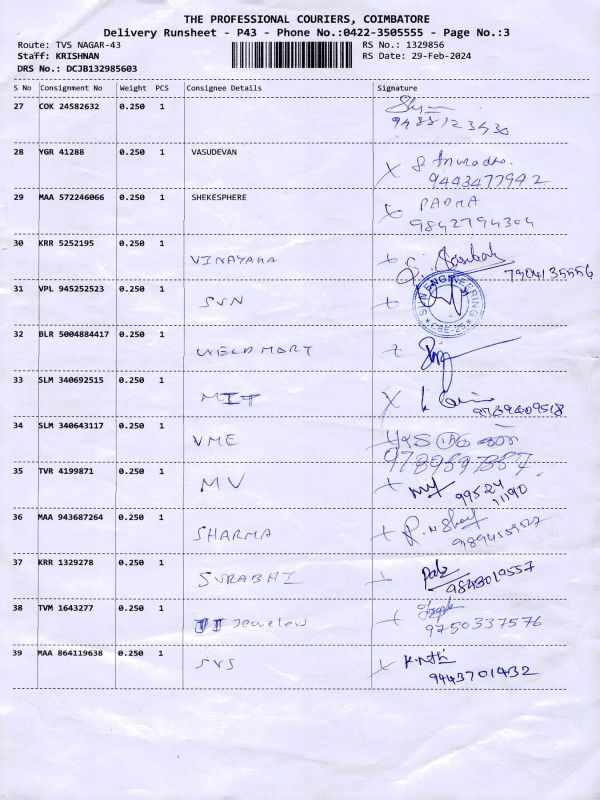 THE PROFESSIONAL COURIERS, COIMBATORE
Delivery Runsheet - P43 - Phone No.:0422-3505555 - Page No.:3
Route: TVS NAGAR-43 RS No.: 1329856
Staff: KRISHNAN RS Date: 29-Feb-2024
DRS No.: DCJB132985603
S No Consignment No Weight PCS Consignee Details Signature
27 COK 24582632 0.250 1
9488123430
28 YGR 41288 0.250 1 VASUDEVAN
9443477992
29 MAA 572246066 0.250 1 SHEKESPHERE PADMA
9842794304
30 KRR 5252195 0.250 1
VINAYAKA
7904135556
31 VPL 945252523 0.250 1
SVN SUN ENGINEERING CBE-25
32 BLR 5004884417 0.250 1
WELD MART
33 SLM 340692515 0.250 1
MIT
34 SLM 340643117 0.250 1
VME
35 TVR 4199871 0.250 1
MV 99524
11190
36 MAA 943687264 0.250 1
SHARMA
37 KRR 1329278 0.250 1
SURABHI 9843019557
38 TVM 1643277 0.250 1
JJ Jewelers 9750337576
39 MAA 864119638 0.250 1
SVS 9443701432